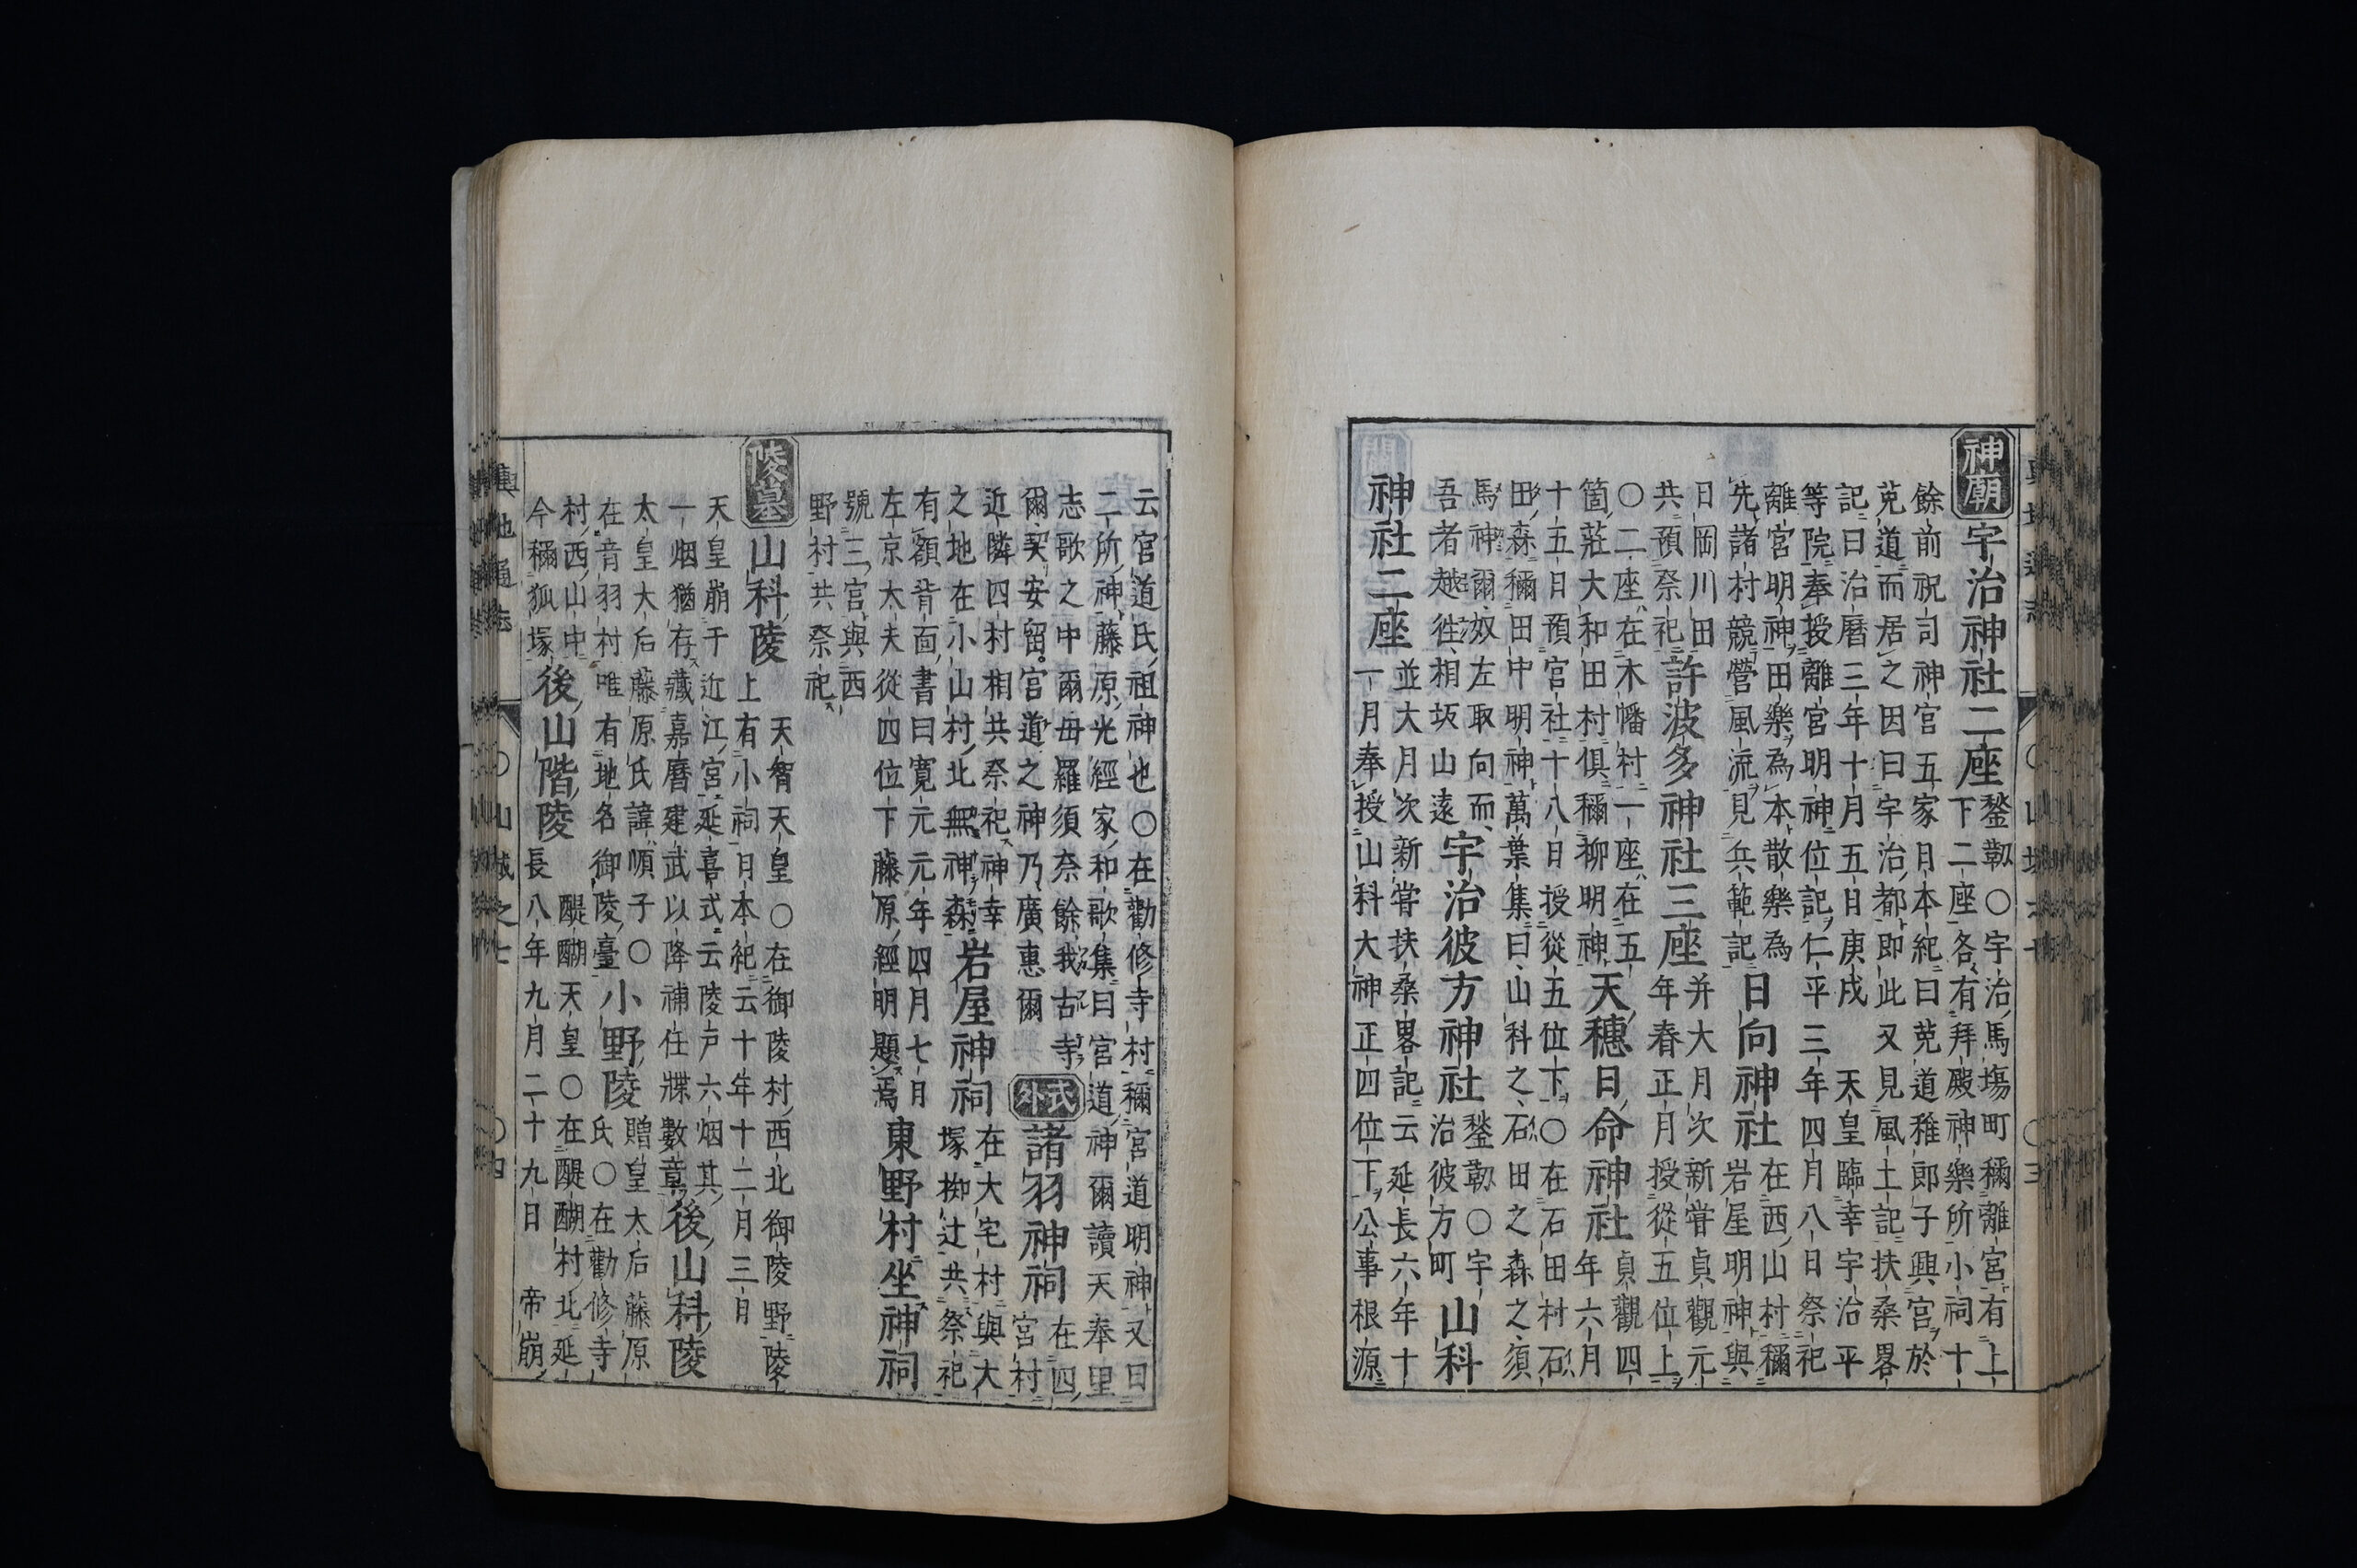 神廟
宇治神社二座
鍫䩭〇宇治馬塲町稱離宮有上
下二座各有拜殿神樂所小祠十
餘前祝司神宮五家日本紀曰菟道稚郎子興宮於
菟道而居之因曰宇治都即此又見風土記扶桑畧
記曰治曆三年十月五日庚戌 天皇臨幸宇治平
等院奉授離宮明神位記仁平三年四月八日祭祀
離宮明神田樂為本散樂為
先諸村競營風流見兵範記
日向神社
在西山村稱
岩屋明神與
日岡川田
共預祭祀
許波多神社三座
并大月次新甞貞觀元
年春正月授從五位上
〇二座在木幡村一座在五
箇莊大和田村俱稱柳明神
天穗日命神社
貞觀四
年六月
十五日預官社十八日授從五位下〇在石田村石
田森稱田中明神萬葉集曰山科之石田之森之須
馬神爾奴左取向而
吾者越徃相坂山遠
宇治彼方神社
鍫䩭〇宇
治彼方町
山科
神社二座
並大月次新甞扶桑畧記云延長六年十
一月奉授山科大神正四位下公事根源
云宮道氏祖神也〇在勸修寺村稱宮道明神又曰
二所神藤原光經家和歌集曰宮道神爾讀天奉里
志歌之中爾毋羅須奈餘我古寺
爾契安留宮道之神乃廣惠爾
式外
諸羽神祠
在四
宮村
近隣四村相共祭祀神幸
之地在小山村北無神森
岩屋神祠
在大宅村與大
塚椥辻共祭祀
有額背面書曰寛元元年四月七月
左京大夫從四位下藤原經明題焉
東野村坐神祠
號三宮與西
野村共祭祀
陵墓
山科陵
天智天皇〇在御陵村西北御陵野陵
上有小祠日本祀云十年十二月三月
天皇崩于近江宮延喜式云陵戶六烟其
一烟猶存藏嘉曆建武以降補任牒數章
後山科陵
太皇大后藤原氏諱順子〇
在音羽村唯有地名御陵臺
小野陵
贈皇太后藤原
氏〇在勸修寺
村西山中
今稱狐塚
後山階陵
醍醐天皇〇在醍醐村北延
長八年九月二十九日 帝崩
輿地通志 〇山城之七 〇四